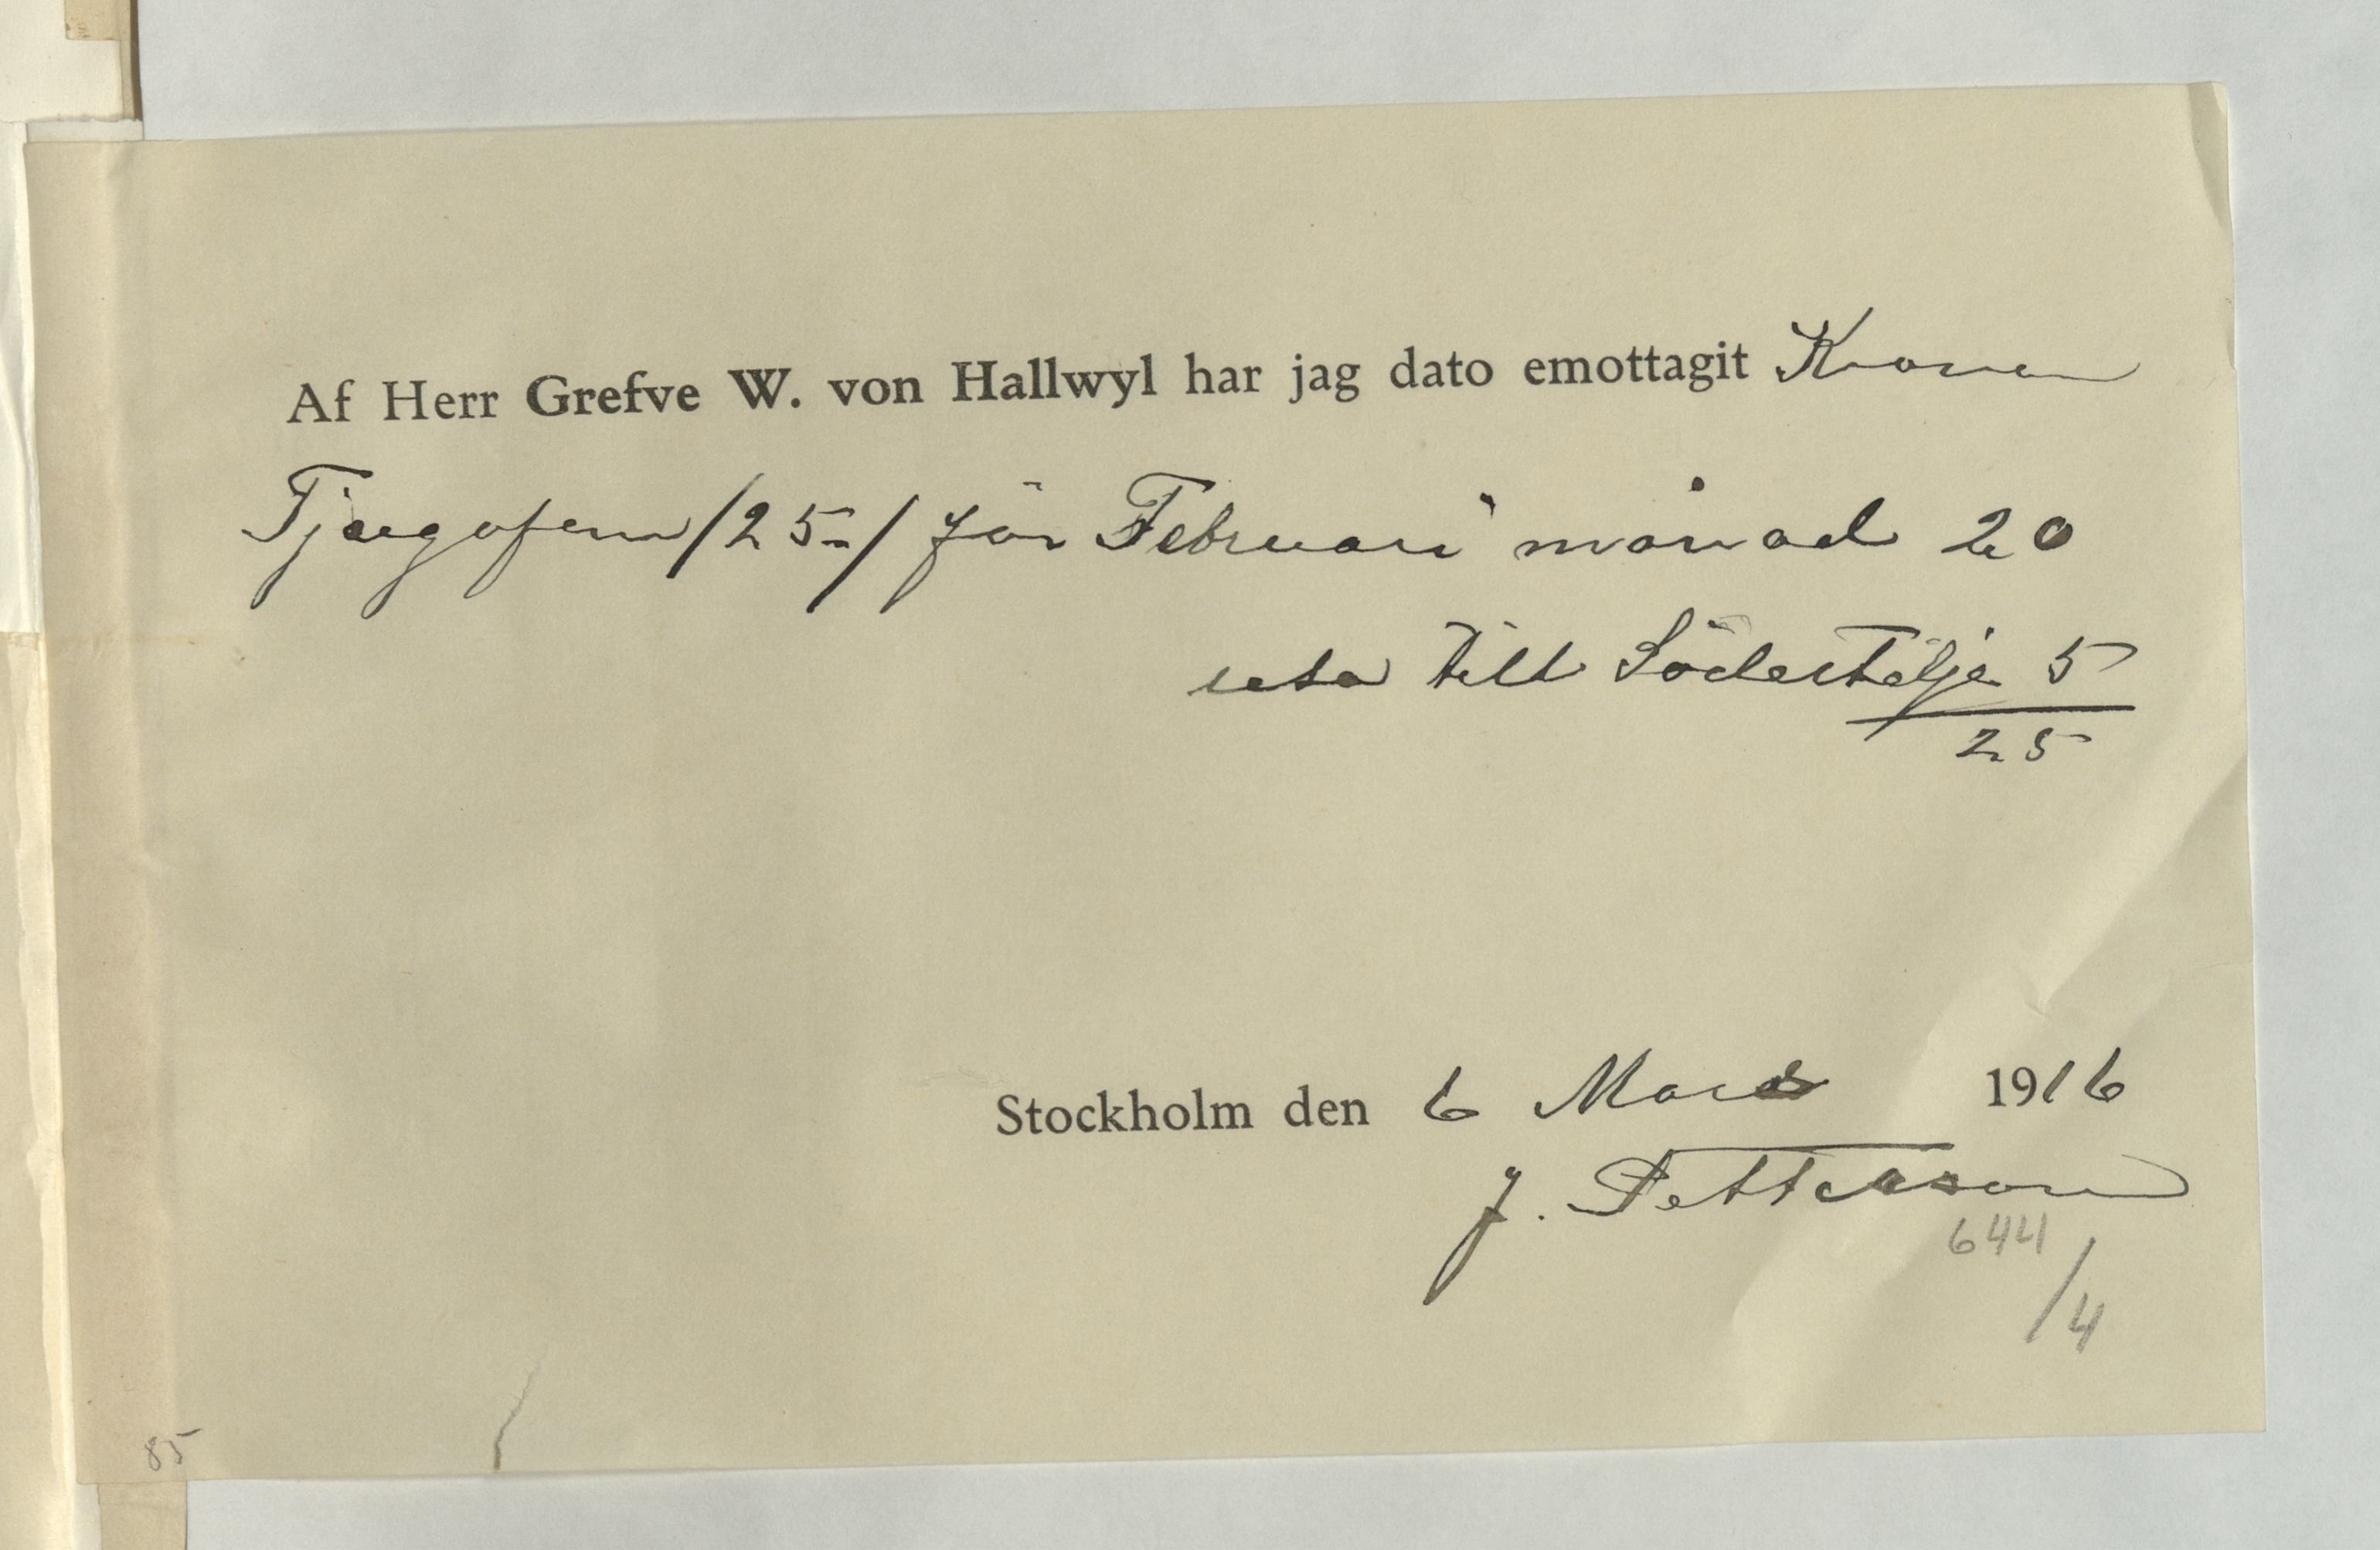 Af Herr Grefve W. von Hallwyl har jag dato emottagit Kronor
Tjugofem /25-/ för Februari månad 20
resa till Södertelje 5
25
Stockholm den 6 Mars 1916
J. Petterson
644/4
85